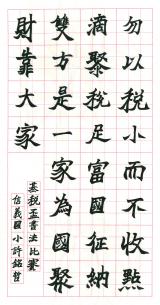 勿以稅小而不收點
滴聚稅足富國征納
雙方是一家為國聚
財靠大家
基稅盃書法比賽
信義國小許銘哲